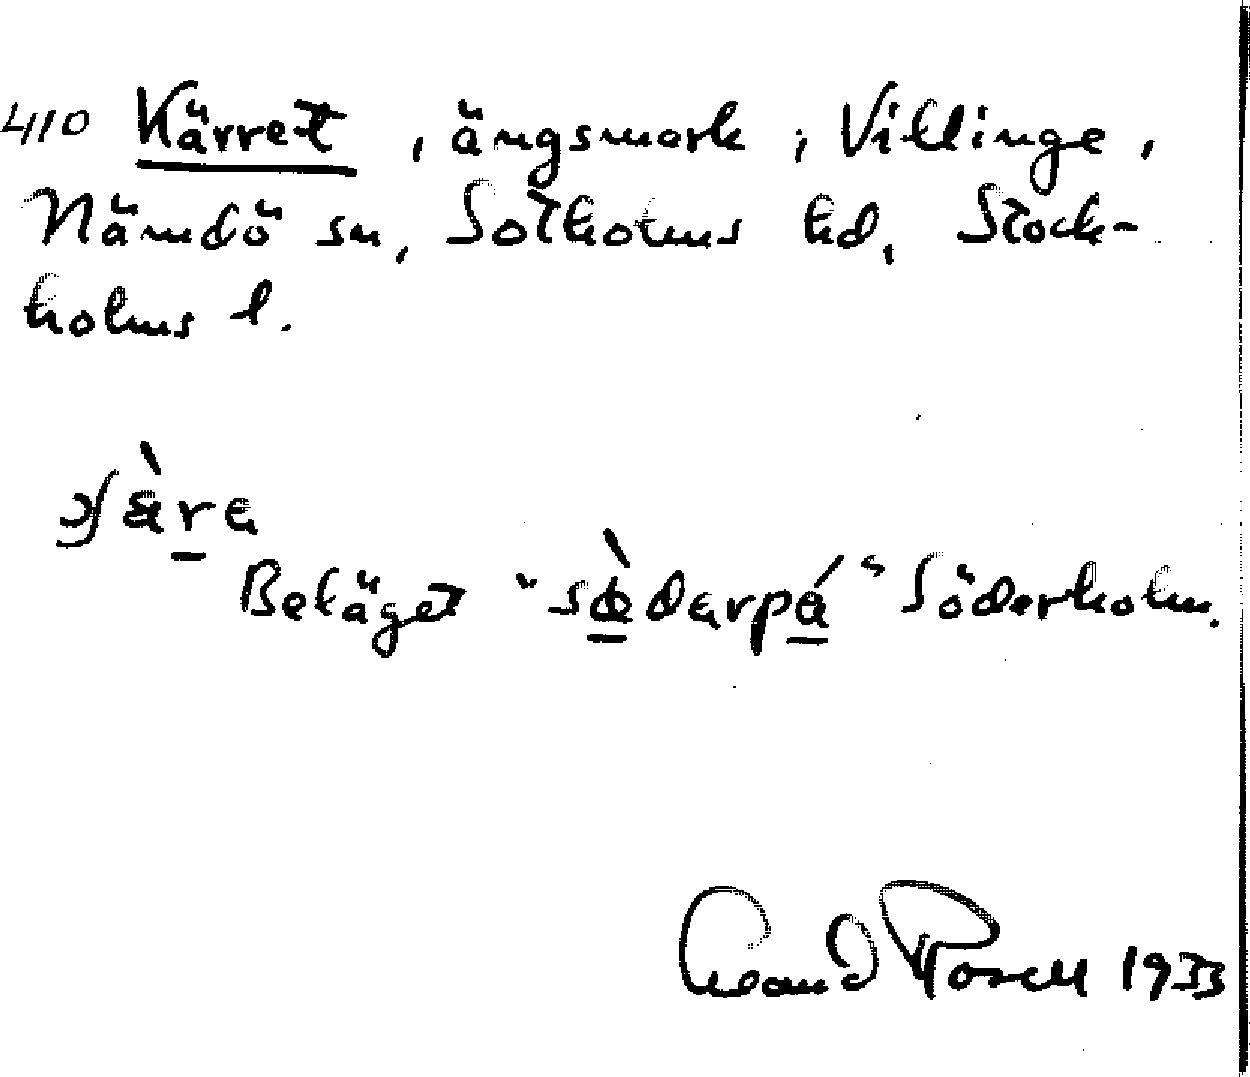 410 Kärret, ängsmark, Villinge,
Nämdö sn, Sotholms hd, Stock-
holms l.
Beläget "sø̀dərpá" Söderholm.
1933